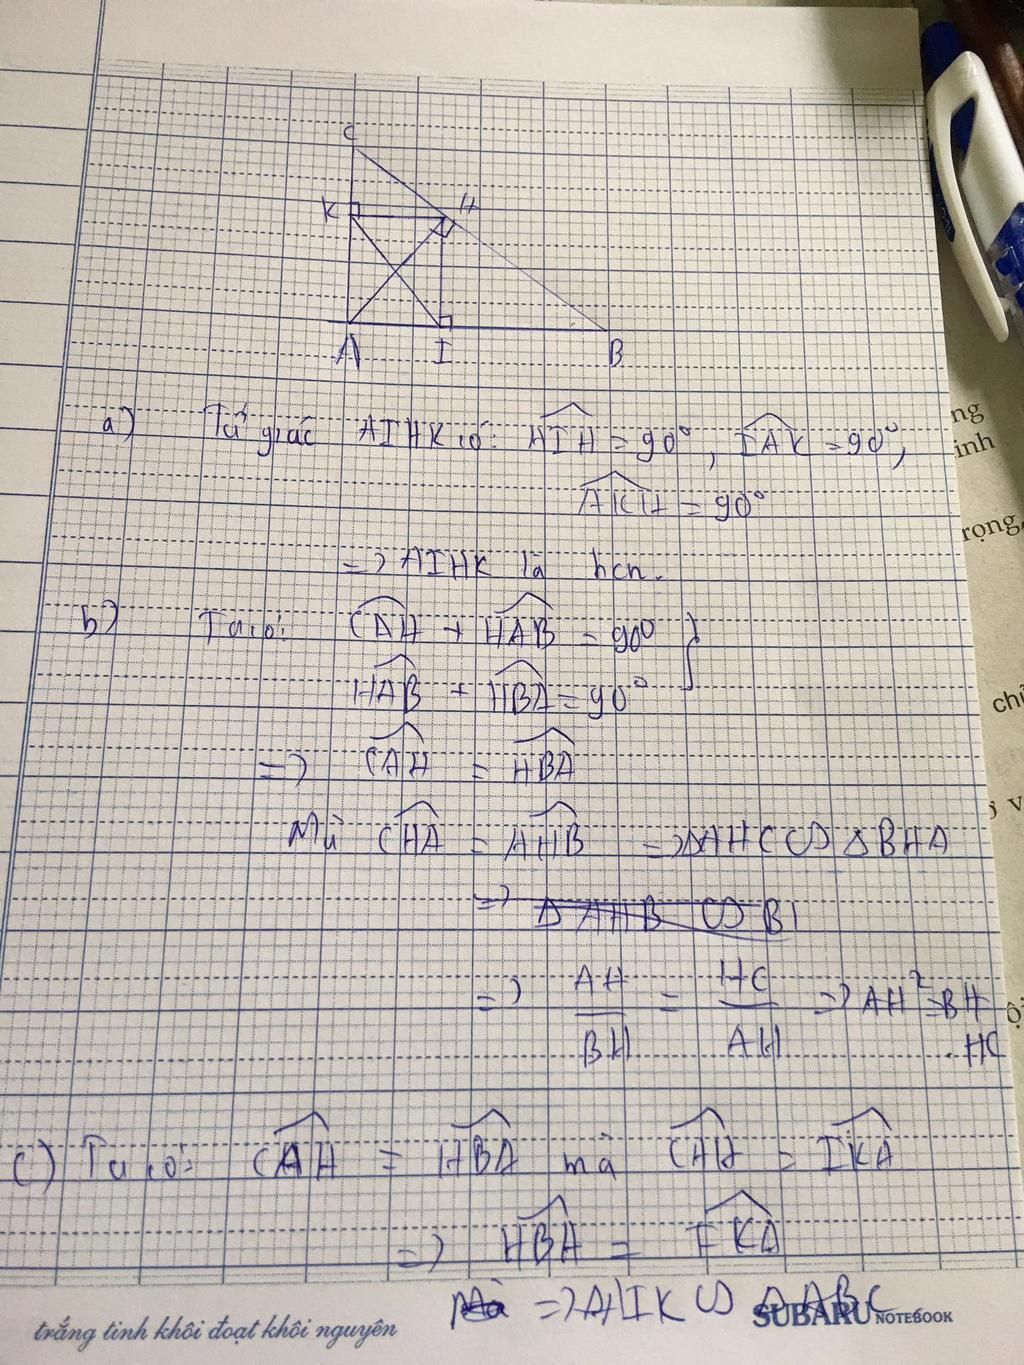 C
K H
A I B
a) Tứ giác AIHK có: AIH = 90°, IAK = 90°,
AKH = 90°
=> AIHK là hcn.
b) Ta có: CAH + HAB = 90°
HAB + HBA = 90°
=> CAH = HBA
Mà CHA = AHB => ΔAHC ∽ ΔBHA
=> Δ AHB ∽ B
=> AH/BH = HC/AH => AH² = BH . HC
c) Ta có: CAH = HBA mà CAH = IKA
=> HBA = IKA
=> ΔAIK ∽ ΔABC
trắng tinh khôi đoạt khôi nguyên
SUBARU NOTEBOOK
ng
inh
rọng,